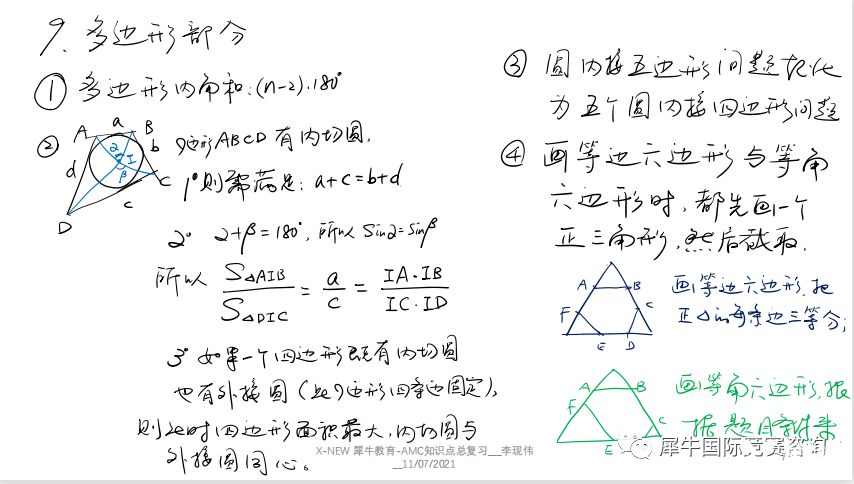 9、多边形部分
① 多边形内角和:(n-2)·180°
② A a B b C c D d I α β
四边形ABCD有内切圆,
1° 则需满足: a+c=b+d
2° α+β=180°, 所以 sinα=sinβ
所以 S△AIB / S△DIC = a / c = IA·IB / IC·ID
3° 如果一个四边形既有内切圆
也有外接圆(此四边形四条边固定),
则此时四边形面积最大,内切圆与
外接圆同心。
③ 圆内接五边形问题转化
为五个圆内接四边形问题
④ 画等边六边形与等角
六边形时,都先画一个
正三角形,然后截取.
A B C D E F
画等边六边形,把
正△的每条边三等分;
A B C E F
画等角六边形,根
据题目条件来
犀牛国际竞赛咨询
X-NEW 犀牛教育-AMC知识点总复习__李现伟
__11/07/2021